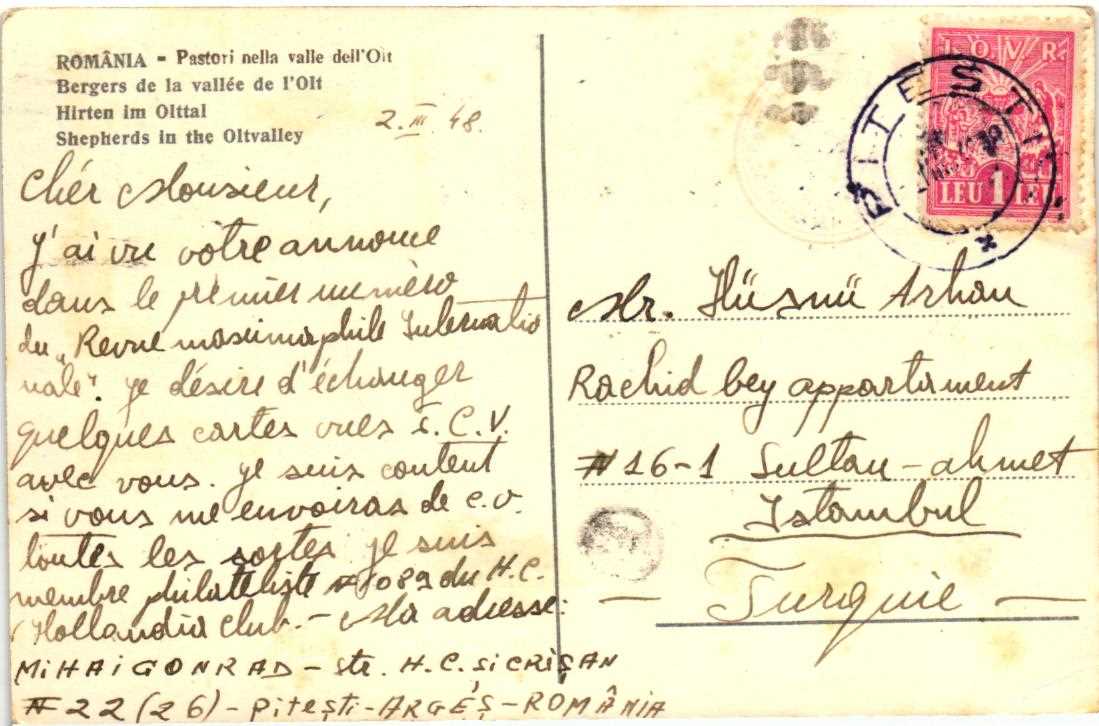 ROMÂNIA - Pastori nella valle dell'Olt
Bergers de la vallée de l'Olt
Hirten im Olttal
Shepherds in the Oltvalley
2.III 48.
Chér Monsieur,
J'ai vu votre annonce
dans le prémier numéro
du „Revue maximaphile Internatio
nale". Je désire d'échanger
quelques cartes vues s. C.V.
avec vous. Je suis content
si vous me envoiras de c.v.
toutes les sortes je suis
membre philateliste # 1089 du H.C.
Hollandia club. - Ma adresse:
MIHAI GONRAD - str. H.C. si CRIŞAN
# 22 (26) - Piteşti - ARGEŞ - ROMÂNIA
I.O.V.R.
LEU 1 LEU
PITESTI
Mr. Hüsnü Arhan
Rachid bey appartument
# 16-1 Sultan-ahmet
Istambul
- Turquie -